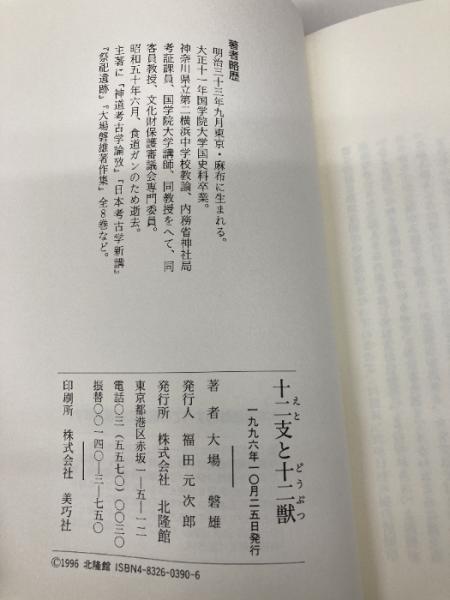 著者略歴
明治三十三年九月東京・麻布に生まれる。
大正十一年国学院大学国史科卒業。
神奈川県立第二横浜中学校教諭、内務省神社局
考証課員、国学院大学講師、同教授をへて、同
客員教授、文化財保護審議会専門委員。
昭和五十年六月、食道ガンのため逝去。
主著に、『神道考古学論攷』『日本考古学新講』
『祭祀遺跡』『大場磐雄著作集』全8巻など。
えと どうぶつ
十二支と十二獣
一九九六年一〇月二五日発行
著者 大場 磐雄
発行人 福田元次郎
発行所 株式会社 北隆館
東京都港区赤坂一―五―一二
電話〇三(五五七〇)〇〇三〇
振替〇〇一四〇―三―七五〇
印刷所 株式会社 美巧社
©1996 北隆館 ISBN4-8326-0390-6